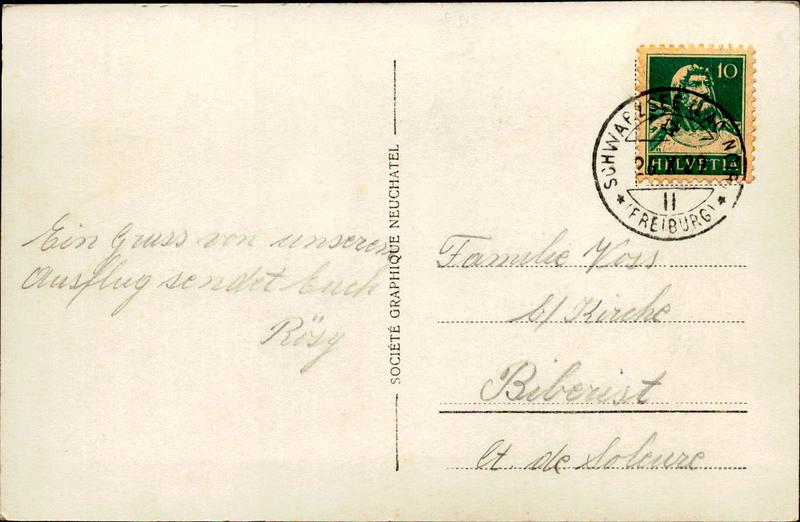 10
HELVETIA
SCHWARZSEE (LAC NOIR)
II
(FREIBURG)
SOCIÉTÉ GRAPHIQUE NEUCHATEL
Ein Gruss von unserem
Ausflug sendet Euch
Rösy
Familie Voss
b/ Kirche
Biberist
Ct. de Soleure